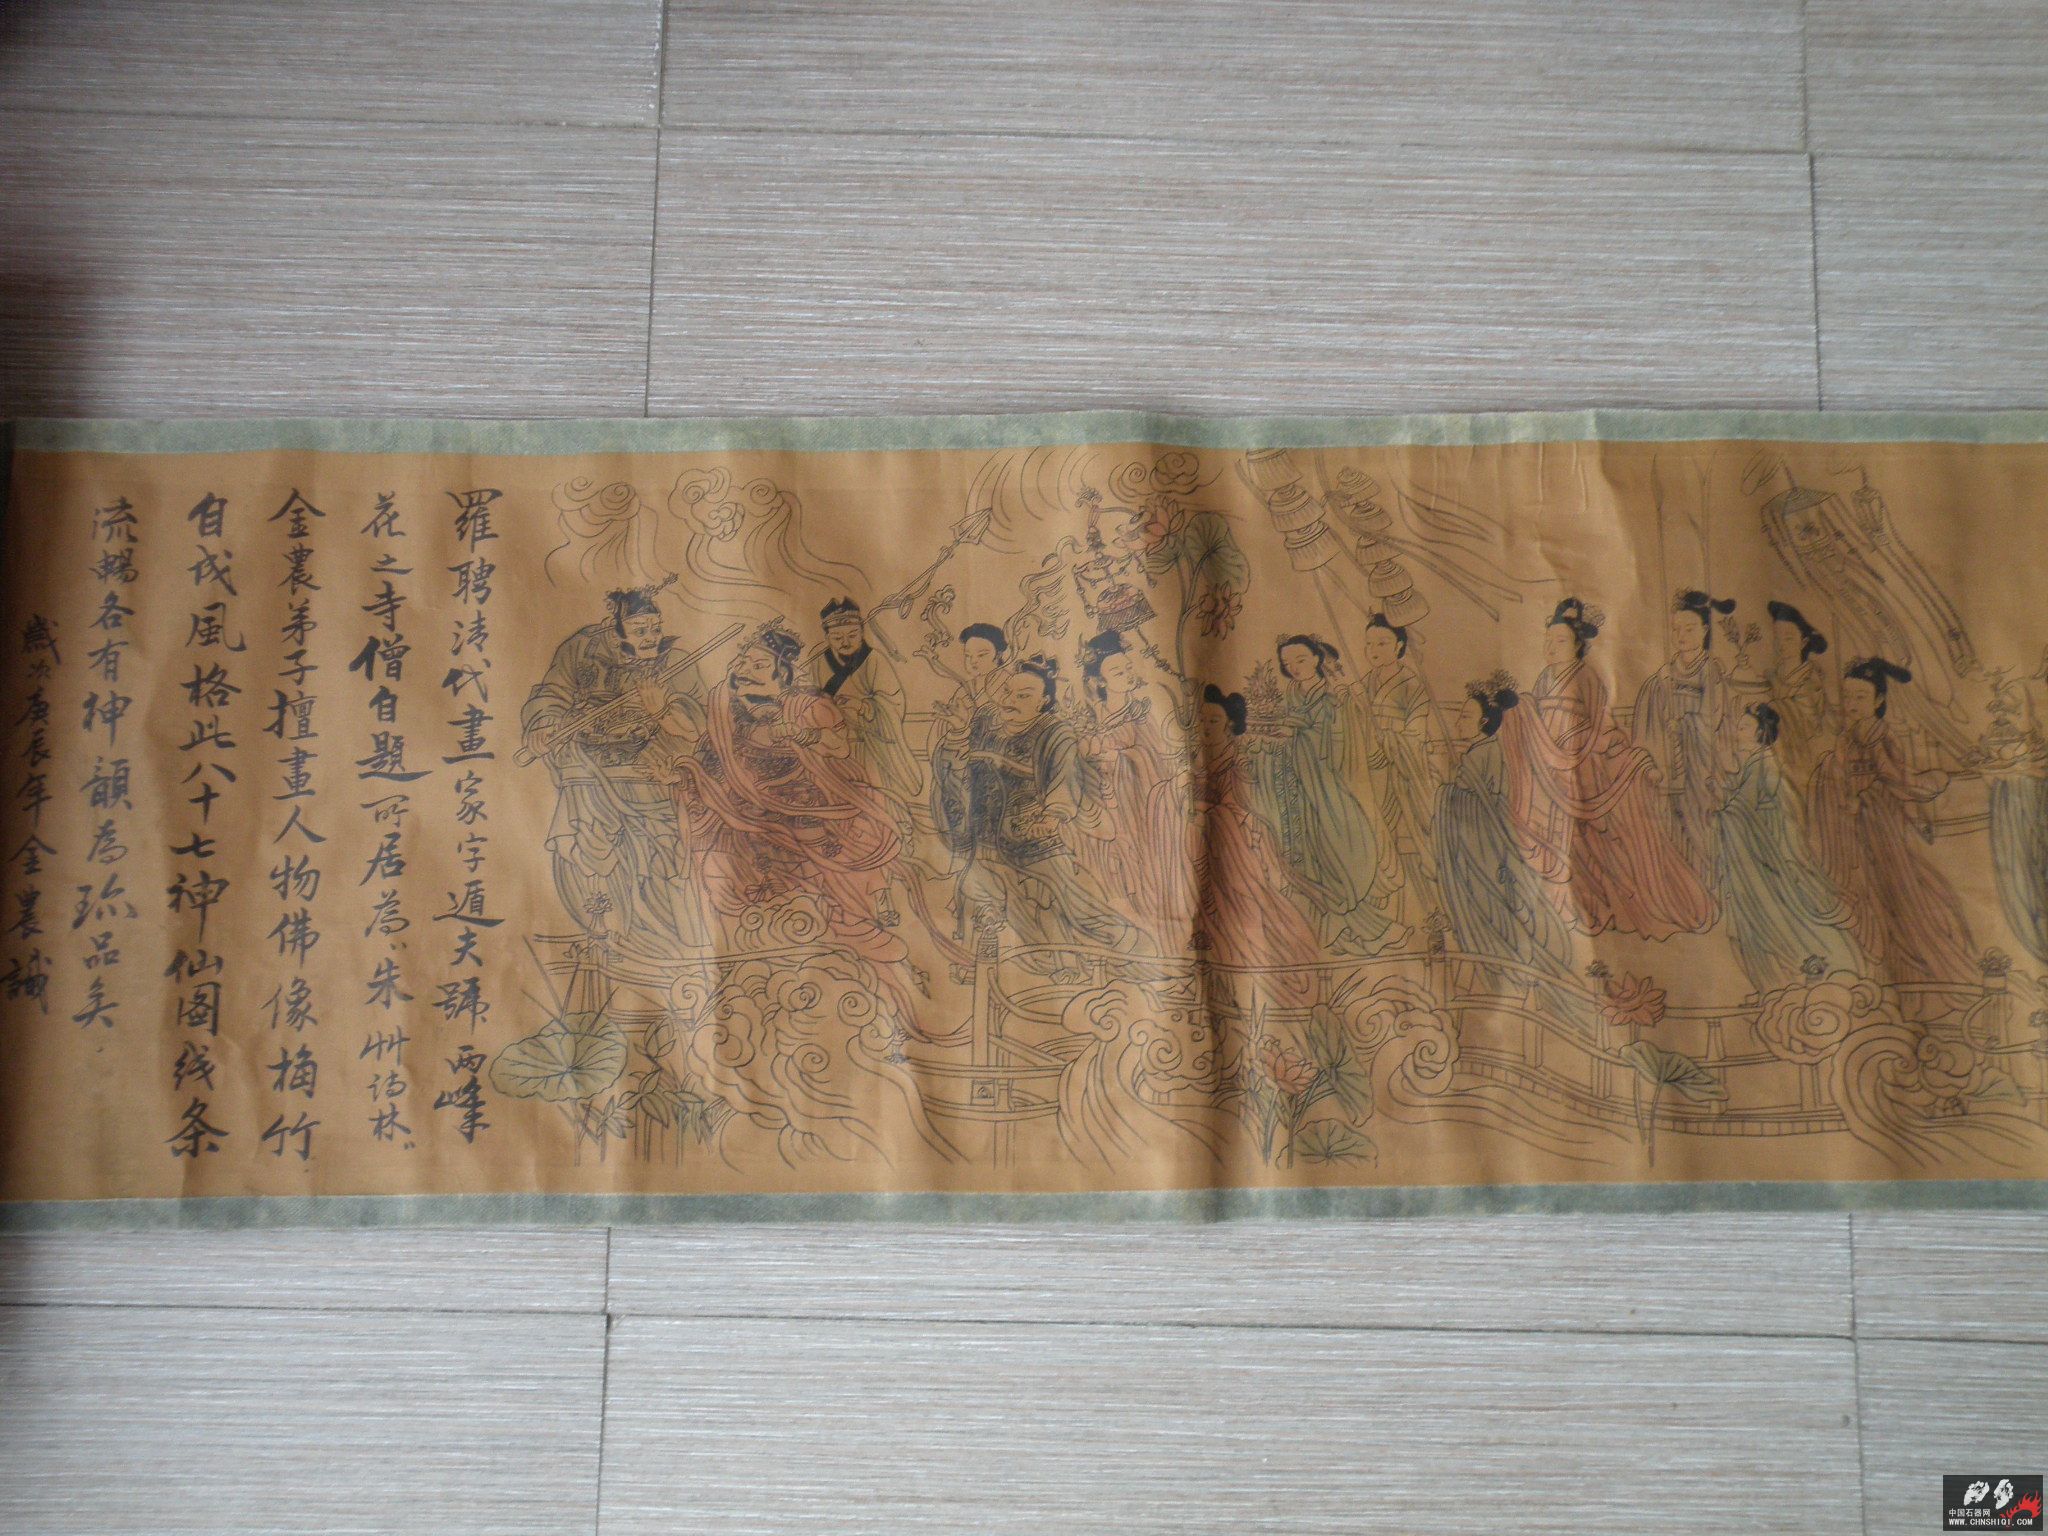 羅聘清代畫家字遁夫號两峰
花之寺僧自題所居為“朱艸诗林”
金農弟子擅畫人物佛像梅竹
自成風格此八十七神仙图线条
流暢各有神韻為珎品矣.
歲次庚辰年金農識
中国石器网
WWW.CHNSHIQI.COM